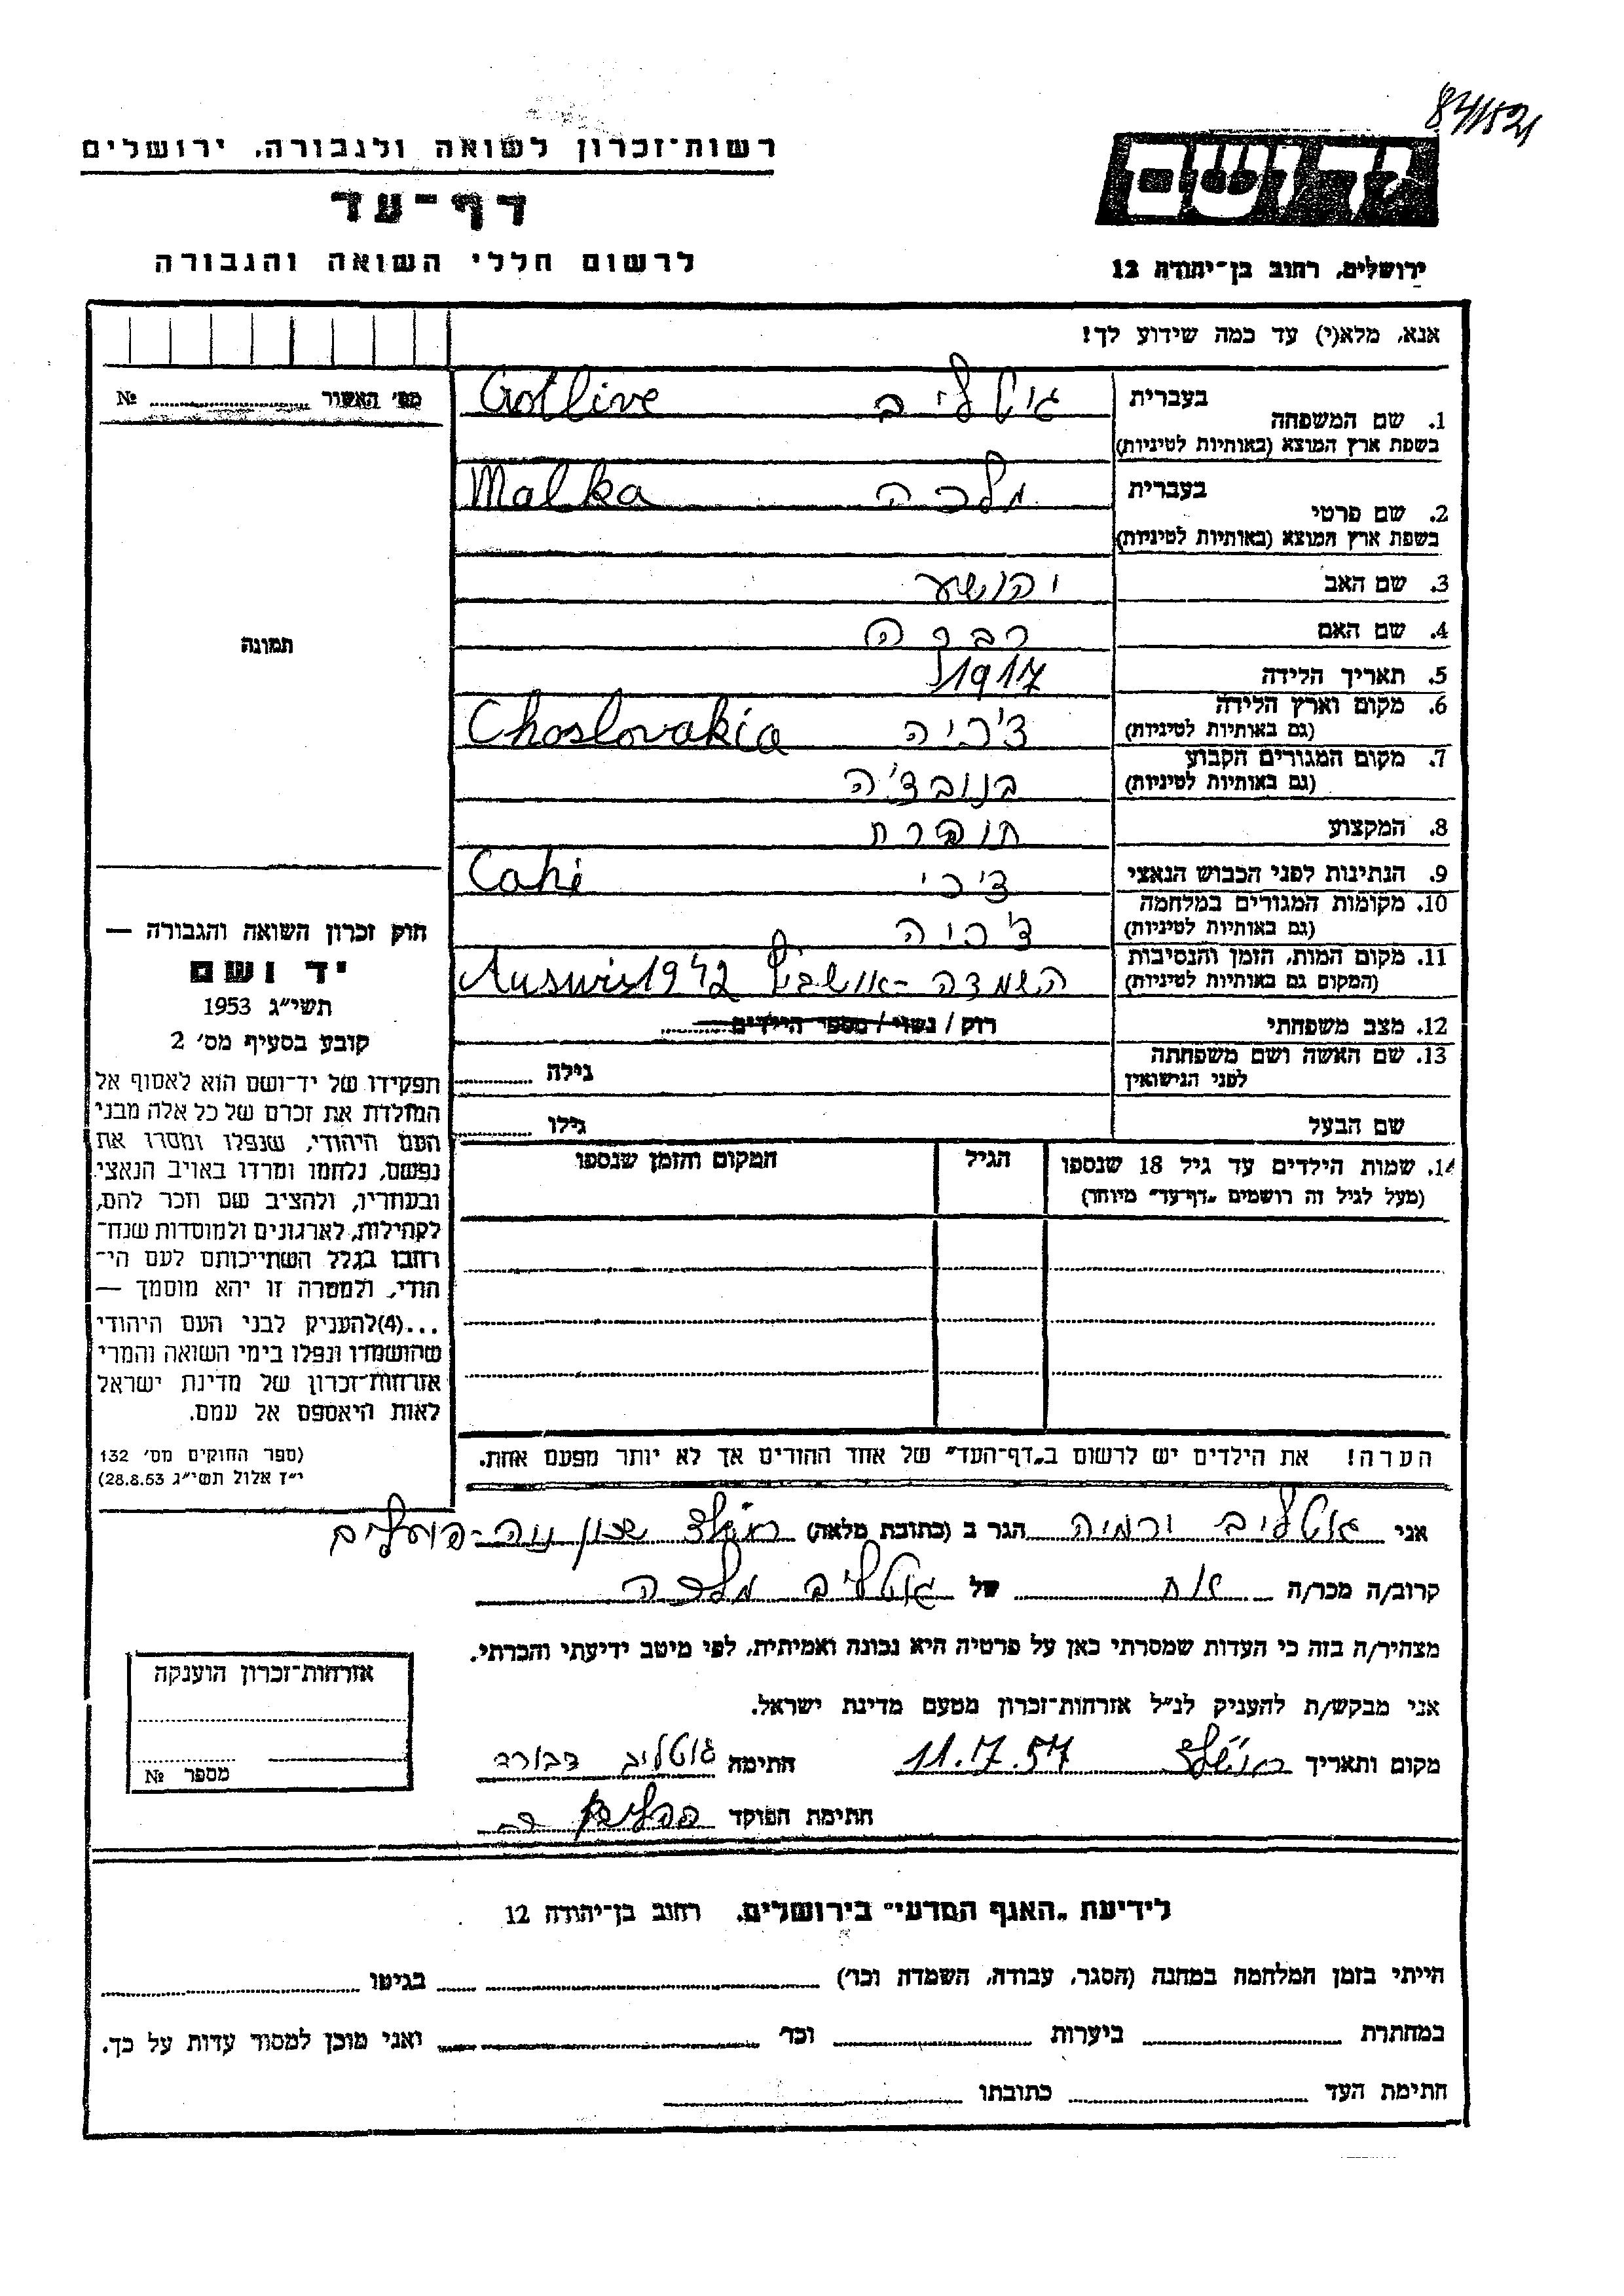 84/1521
רשות־זכרון לשואה ולגבורה, ירושלים
יד ושם
דף־עד
לרשום חללי השואה והגבורה
ירושלים, רחוב בן־יהודה 12
אנא, מלא(י) עד כמה שידוע לך!
מס׳ האשור № 
1. שם המשפחה בעברית גוטליב Gotlive
בשפת ארץ המוצא (באותיות לטיניות)
2. שם פרטי בעברית מלכה Malka
בשפת ארץ המוצא (באותיות לטיניות)
3. שם האב יהושע
4. שם האם רבקה
תמונה
5. תאריך הלידה 1917
6. מקום וארץ הלידה צ'כיה Choslovakia
(גם באותיות לטיניות)
7. מקום המגורים הקבוע
(גם באותיות לטיניות)
8. המקצוע תופרת
9. הנתינות לפני הכבוש הנאצי צ'כי Cahi
10. מקומות המגורים במלחמה צ'כיה
(גם באותיות לטיניות)
11. מקום המות, הזמן והנסיבות השמדה - אושביץ Auswis 1942
(המקום גם באותיות לטיניות)
12. מצב משפחתי רווק / נשוי / מספר הילדים
13. שם האשה ושם משפחתה גילה
לפני הנישואין
שם הבעל גילו
14. שמות הילדים עד גיל 18 שנספו הגיל המקום והזמן שנספו
(מעל לגיל זה רושמים „דף־עד" מיוחד)
חוק זכרון השואה והגבורה —
יד ושם
תשי״ג 1953
קובע בסעיף מס׳ 2
תפקידו של יד־ושם הוא לאסוף אל
המולדת את זכרם של כל אלה מבני
העם היהודי, שנפלו ומסרו את
נפשם, נלחמו ומרדו באויב הנאצי
ובעוזריו, ולהציב שם וזכר להם,
לקהילות, לארגונים ולמוסדות שנח־
רבו בגלל השתייכותם לעם הי־
הודי, ולמטרה זו יהא מוסמך —
...(4)להעניק לבני העם היהודי
שהושמדו ונפלו בימי השואה והמרי
אזרחות־זכרון של מדינת ישראל
לאות היאספם אל עמם.
(ספר החוקים מס׳ 132
י״ז אלול תשי״ג 28.8.53)
הערה! את הילדים יש לרשום ב„דף־העד" של אחד ההורים אך לא יותר מפעם אחת.
אני גוטליב הגר ב (כתובת מלאה) שכון נוה-פועלים
קרוב/ה מכר/ה אח של גוטליב מלכה
מצהיר/ה בזה כי העדות שמסרתי כאן על פרטיה היא נכונה ואמיתית, לפי מיטב ידיעתי והכרתי.
אני מבקש/ת להעניק לנ״ל אזרחות־זכרון מטעם מדינת ישראל.
מקום ותאריך 11.7.57 חתימה גוטליב דבורה
חתימת הפוקד
אזרחות־זכרון הוענקה
מספר №
לידיעת „האגף המדעי" בירושלים, רחוב בן־יהודה 12
הייתי בזמן המלחמה במחנה (הסגר, עבודה, השמדה וכו׳) בגיטו
במחתרת ביערות וכו׳ ואני מוכן למסור עדות על כך.
חתימת העד כתובתו